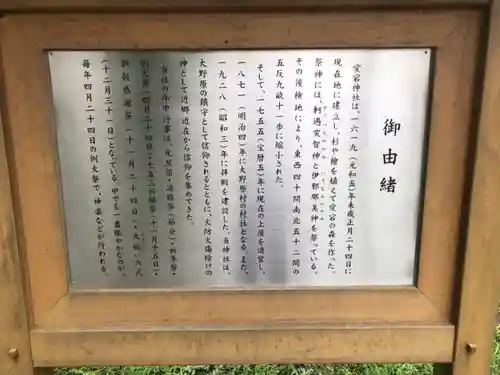 御由緒
愛宕神社は、一六一九(元和五)年未歳正月二十四日に
現在地に建立し、杉や檜を植えて愛宕の森を作った。
祭神には、軻遇突智神と伊邪那美神を祭っている。
その後検地により、東西四十間南北五十二間の
五反九畝十一歩に縮小された。
そして、一七五五(宝暦五)年に現在の上屋を造営し、
一八七一(明治四)年に大野原村の村社となる。また、
一九二八(昭和三)年に拝殿を建設した。当神社は、
大野原の鎮守として信仰されるとともに、火防火傷除けの
神として近郷近在から信仰を集めてきた。
当社の年中行事は、元旦祭・追儺祭(節分)・祈年祭・
例大祭(四月二十四日)・七五三祈願祭(十一月十五日)・
新穀感謝祭(十一月二十四日)・大祓い の式
(十二月三十一日)となっている。中でも一番賑やかなのが、
毎年四月二十四日の例大祭で、神楽などが行われる。